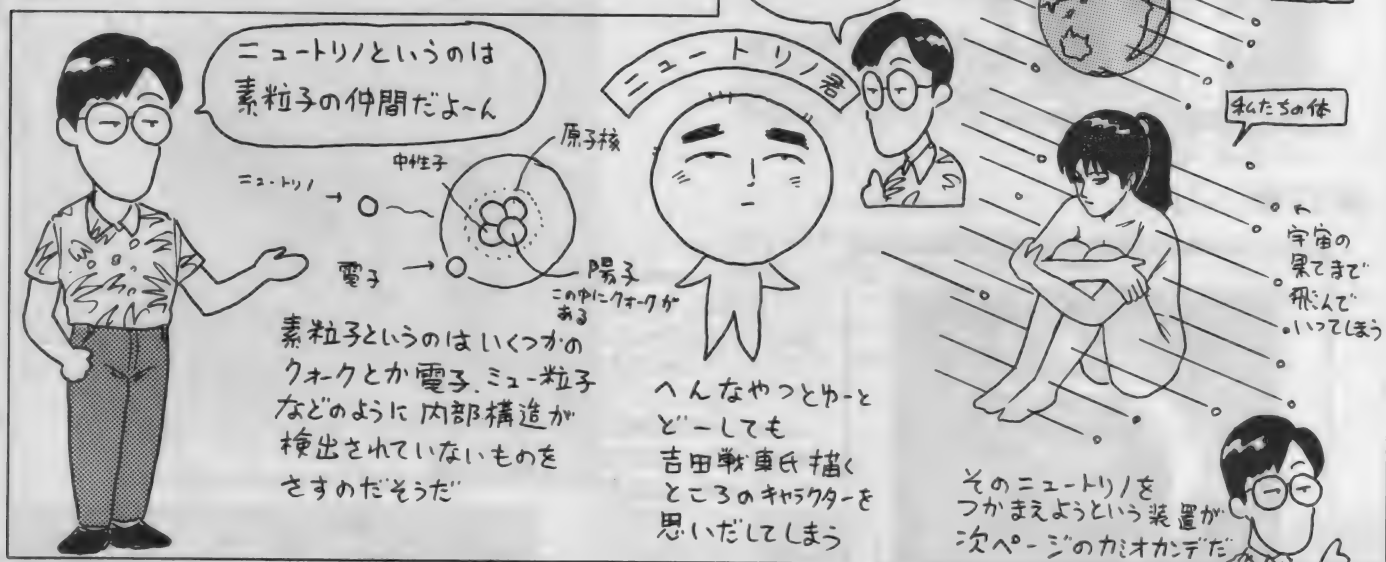 ニュートリノというのは
素粒子の仲間だよ〜ん
中性子
原子核
ニュートリノ→
電子→
陽子
この中にクォークが
ある
素粒子というのはいくつかの
クォークとか電子、ミュー粒子
などのように内部構造が
検出されていないものを
さすのだそうだ
ニュートリノ君
へんなやつとゆーと
どーしても
吉田戦車氏描く
ところのキャラクターを
思いだしてしまう
私たちの体
宇宙の
果てまで
飛んで
いってしまう
そのニュートリノを
つかまえようという装置が
次ページのカミオカンデだ